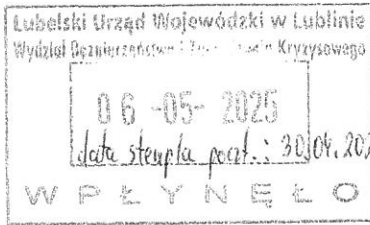 Lubelski Urząd Wojewódzki w Lublinie
Wydział Bezpieczeństwa i Zarządzania Kryzysowego
06 -05- 2025
data stempla poczt.: 30.04.202
WPŁYNĘŁO